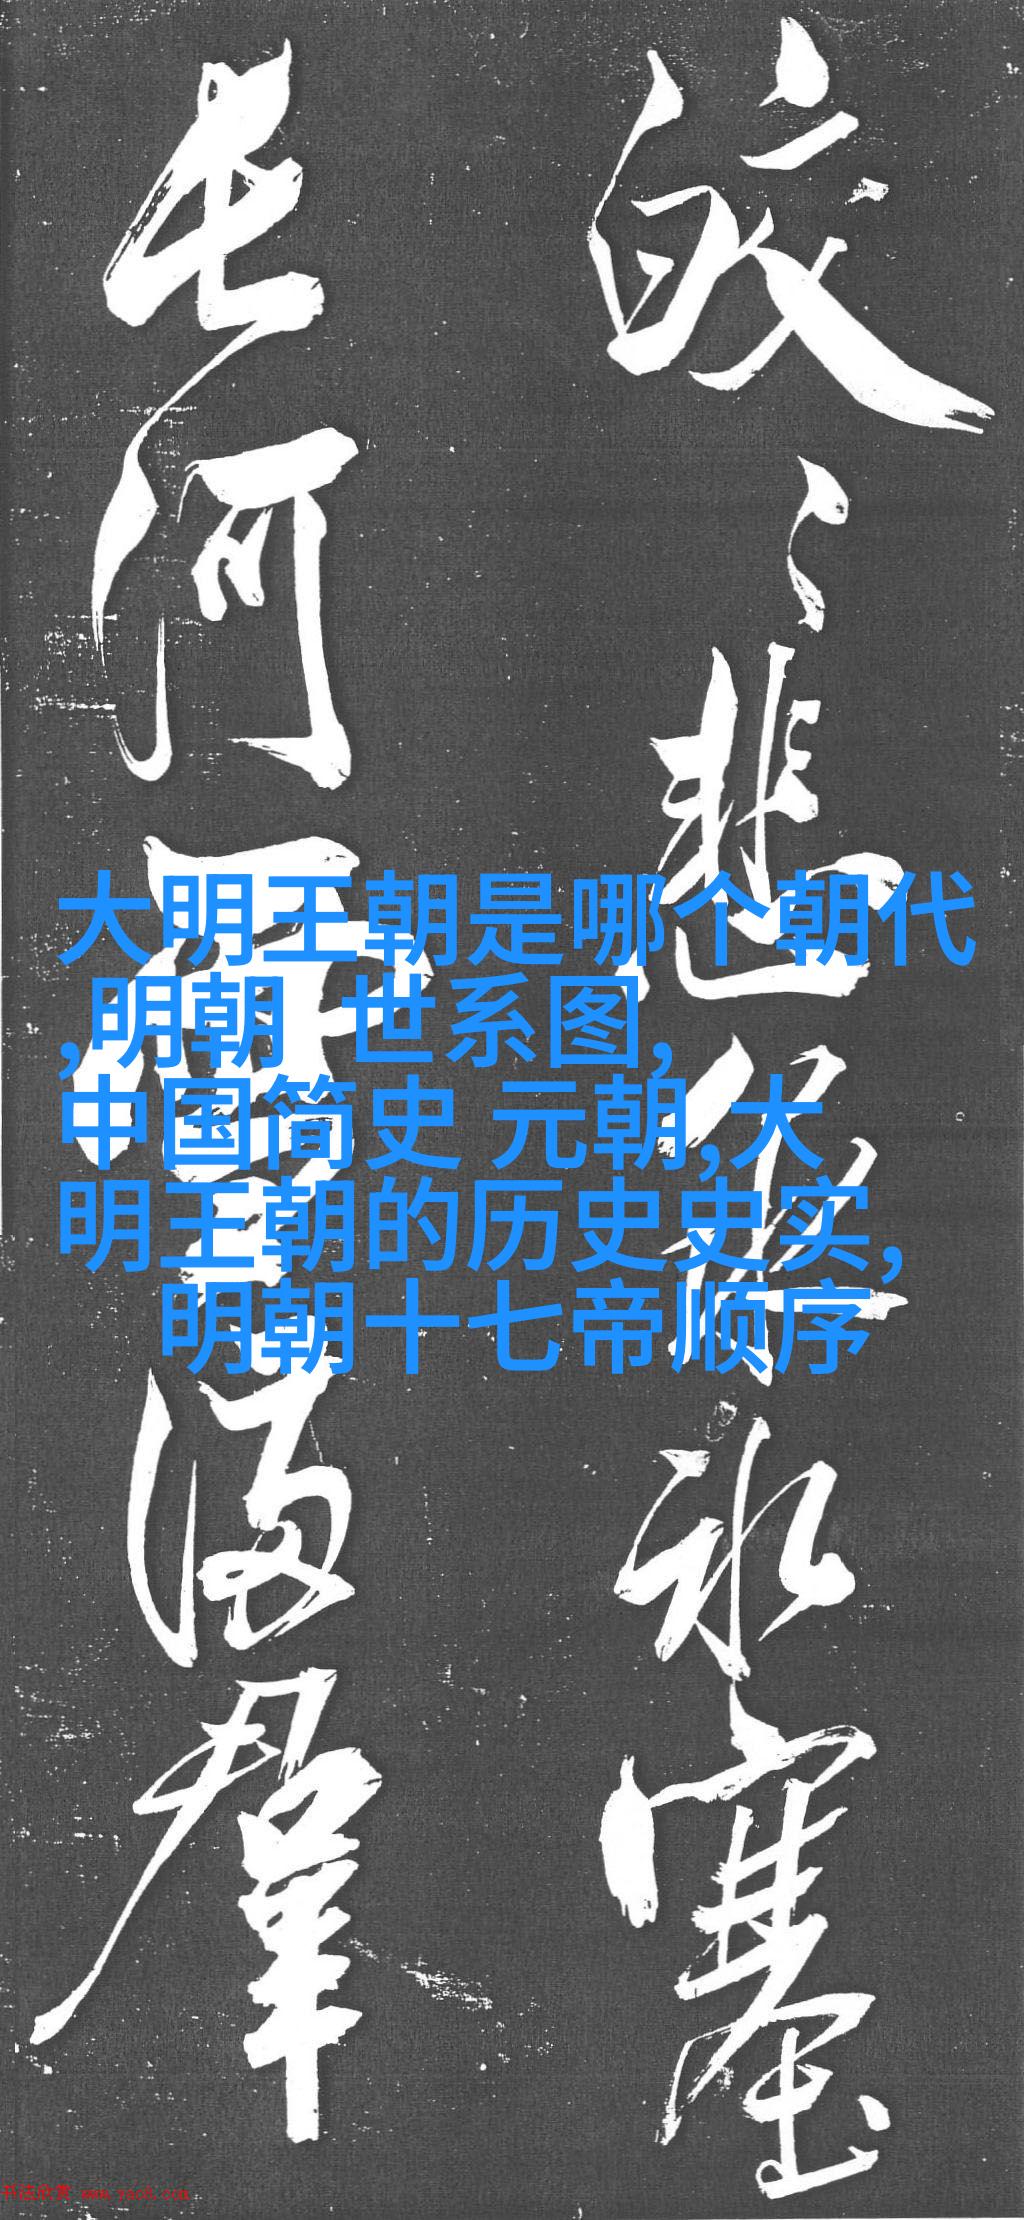 皎〻悲氷塞
長河雪滿羣
大明王朝是哪个朝代
,明朝 世系图,
中国简史 元朝,大
明王朝的历史史实,
明朝十七帝顺序
书法欣赏 www.yac8.com